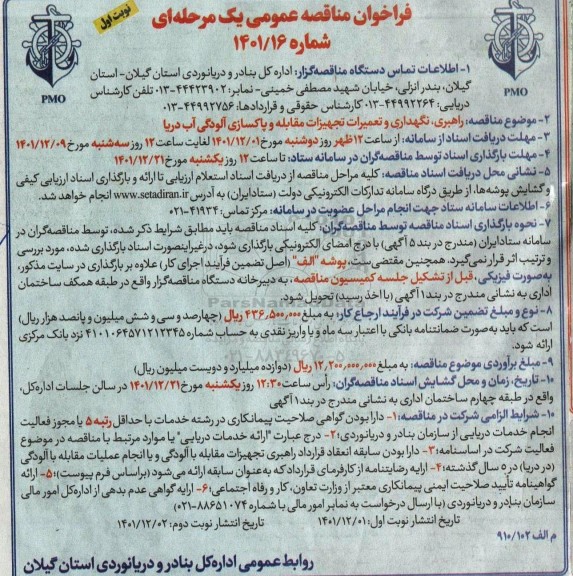 فراخوان مناقصه عمومی یک مرحله‌ای
شماره ۱۴۰۱/۱۶
نوبت اول
PMO
PMO
۱- اطلاعات تماس دستگاه مناقصه‌گزار: اداره کل بنادر و دریانوردی استان گیلان- استان
گیلان، بندر انزلی، خیابان شهید مصطفی خمینی- نمابر: ۴۴۴۲۳۹۰۲-۰۱۳ تلفن کارشناس
دریایی: ۴۴۹۹۲۲۶۴-۰۱۳ کارشناس حقوقی و قراردادها: ۴۴۹۹۲۷۵۶-۰۱۳
۲- موضوع مناقصه: راهبری، نگهداری و تعمیرات تجهیزات مقابله و پاکسازی آلودگی آب دریا
۳- مهلت دریافت اسناد از سامانه: از ساعت ۱۲ ظهر روز دوشنبه مورخ ۱۴۰۱/۱۲/۰۱ لغایت ساعت ۱۲ روز سه‌شنبه مورخ ۱۴۰۱/۱۲/۰۹
۴- مهلت بارگذاری اسناد توسط مناقصه‌گران در سامانه ستاد: تا ساعت ۱۲ روز یکشنبه مورخ ۱۴۰۱/۱۲/۲۱
۵- نشانی محل دریافت اسناد مناقصه: کلیه مراحل مناقصه از دریافت اسناد استعلام ارزیابی تا ارائه و بارگذاری اسناد ارزیابی کیفی
و گشایش پوشه‌ها، از طریق درگاه سامانه تدارکات الکترونیکی دولت (ستادایران) به آدرس www.setadiran.ir انجام خواهد شد.
۶- اطلاعات سامانه ستاد جهت انجام مراحل عضویت در سامانه: مرکز تماس: ۴۱۹۳۴-۰۲۱
۷- نحوه بارگذاری اسناد مناقصه توسط مناقصه‌گران: کلیه اسناد مناقصه باید مطابق شرایط ذکر شده، توسط مناقصه‌گران در
سامانه ستادایران (مندرج در بند ۵ آگهی) با درج امضای الکترونیکی بارگذاری شود، در غیراینصورت اسناد بارگذاری شده، مورد بررسی
و ترتیب اثر قرار نمی‌گیرد. همچنین مقتضی ست، پوشه "الف" (اصل تضمین فرآیند اجرای کار) علاوه بر بارگذاری در سایت مذکور،
به‌صورت فیزیکی، قبل از تشکیل جلسه کمیسیون مناقصه، به دبیرخانه دستگاه مناقصه‌گزار واقع در طبقه همکف ساختمان
اداری به نشانی مندرج در بند ۱ آگهی (با اخذ رسید) تحویل شود.
۸- نوع و مبلغ تضمین شرکت در فرآیند ارجاع کار: به مبلغ ۴۳۶,۵۰۰,۰۰۰ ریال (چهارصد و سی و شش میلیون و پانصد هزار ریال)
است که باید به‌صورت ضمانتنامه بانکی با اعتبار سه ماه و یا واریز نقدی به حساب شماره ۴۱۰۱۰۶۴۵۷۱۲۱۲۳۴۵ نزد بانک مرکزی
ارائه شود.
۹- مبلغ برآوردی موضوع مناقصه: به مبلغ ۱۲,۲۰۰,۰۰۰,۰۰۰ ریال (دوازده میلیارد و دویست میلیون ریال)
۱۰- تاریخ، زمان و محل گشایش اسناد مناقصه‌گران: رأس ساعت ۱۲:۳۰ روز یکشنبه مورخ ۱۴۰۱/۱۲/۲۱ در سالن جلسات اداره‌کل،
واقع در طبقه چهارم ساختمان اداری به نشانی مندرج در بند ۱ آگهی
۱۰- شرایط الزامی شرکت در مناقصه: ۱- دارا بودن گواهی صلاحیت پیمانکاری در رشته خدمات با حداقل رتبه ۵ یا مجوز فعالیت
انجام خدمات دریایی از سازمان بنادر و دریانوردی؛ ۲- درج عبارت "ارائه خدمات دریایی" یا موارد مرتبط با مناقصه در موضوع
فعالیت شرکت در اساسنامه؛ ۳- دارا بودن سابقه انعقاد قرارداد راهبری تجهیزات مقابله با آلودگی و یا انجام عملیات مقابله با آلودگی
(در دریا) در ۵ سال گذشته؛ ۴- ارایه رضایتنامه از کارفرمای قرارداد که به‌عنوان سابقه ارائه می‌شود (براساس فرم پیوست)؛ ۵- ارائه
گواهینامه تأیید صلاحیت ایمنی پیمانکاری معتبر از وزارت تعاون، کار و رفاه اجتماعی؛ ۶- ارایه گواهی عدم بدهی از اداره‌کل امور مالی
سازمان بنادر و دریانوردی (با ارسال درخواست به نمابر امور مالی با شماره ۸۸۶۵۱۰۷۴-۰۲۱)
تاریخ انتشار نوبت اول: ۱۴۰۱/۱۲/۰۱ تاریخ انتشار نوبت دوم: ۱۴۰۱/۱۲/۰۲
م الف ۹۱۰/۱۰۲
روابط عمومی اداره‌کل بنادر و دریانوردی استان گیلان